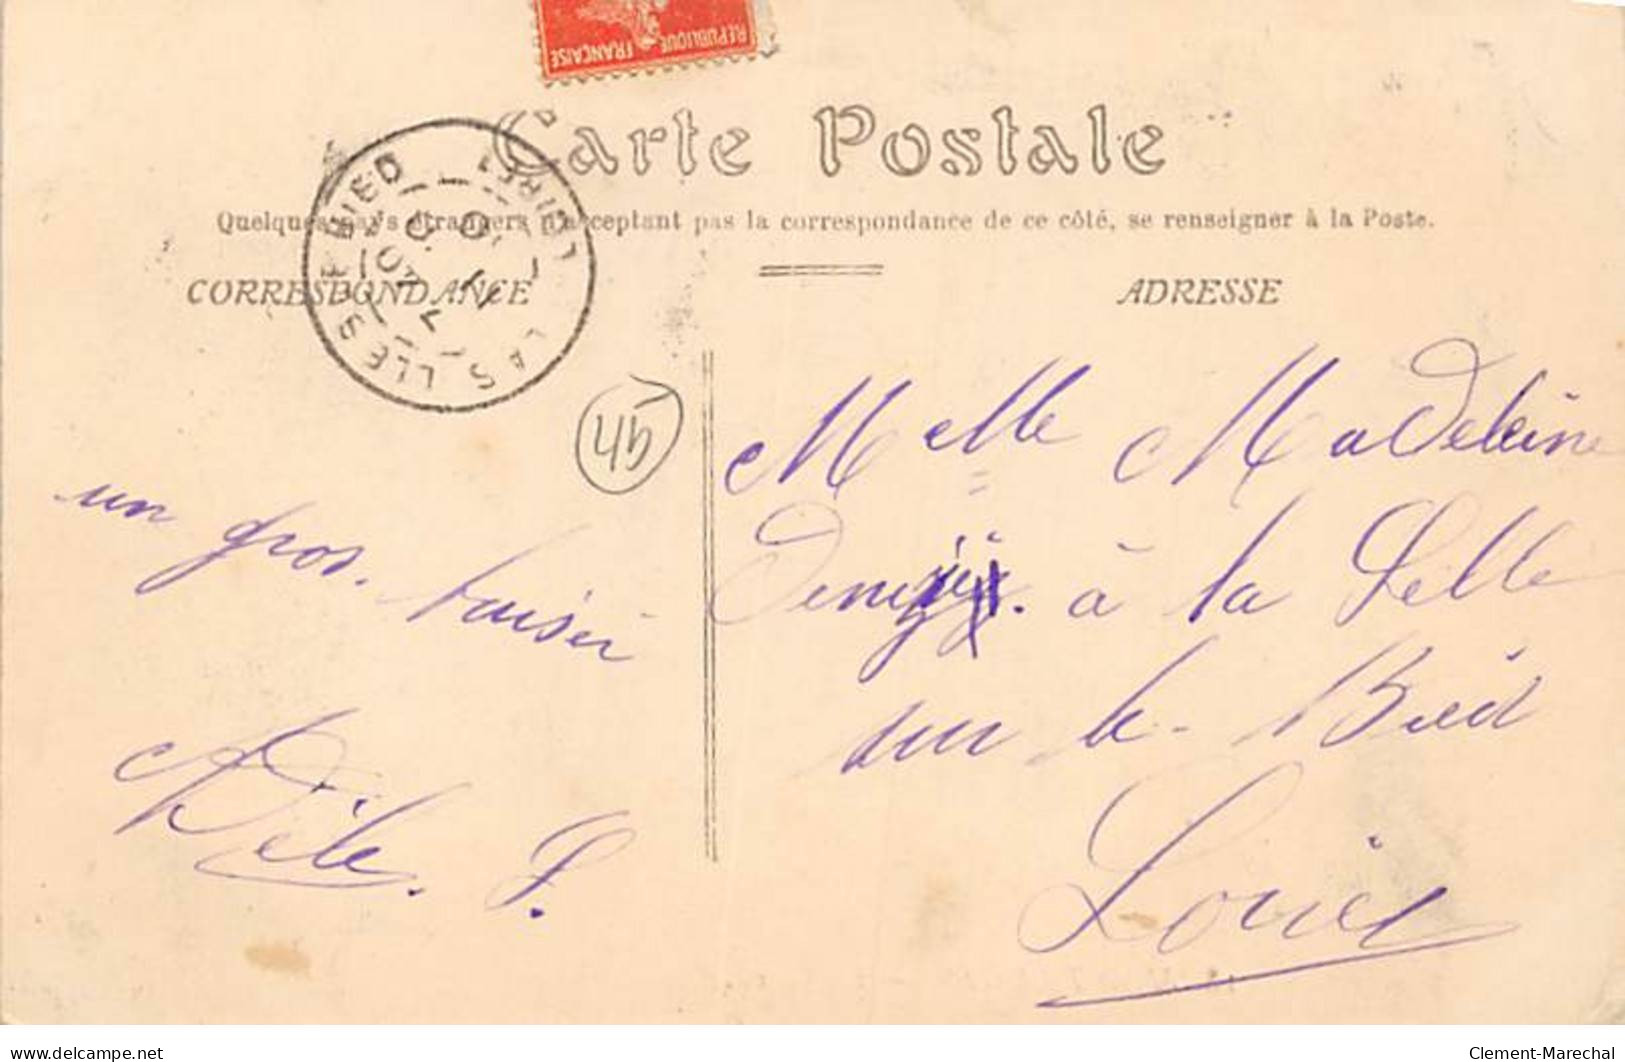 REPUBLIQUE FRANÇAISE
Carte Postale
Quelques pays étrangers n'acceptant pas la correspondance de ce côté, se renseigner à la Poste.
CORRESPONDANCE
ADRESSE
LA SELLE S LE BIED LOIRET
45
un gros baiser
Adèle. P.
Melle Madeleine
à la Selle
sur le Bied
Loiret
www.delcampe.net
Clement-Marechal